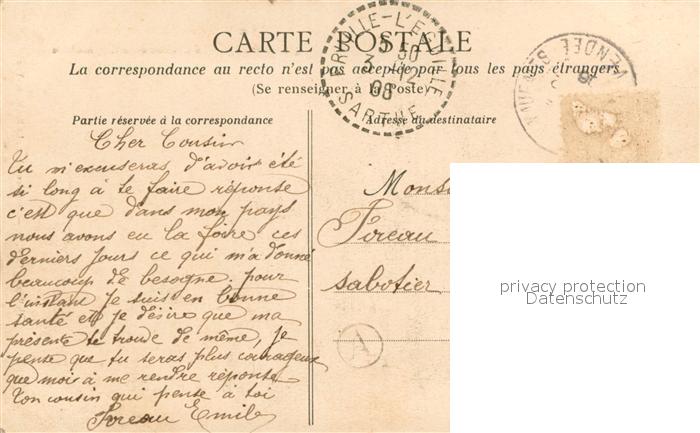 CARTE POSTALE
La correspondance au recto n'est pas acceptée par tous les pays étrangers
(Se renseigner à la Poste)
Partie réservée à la correspondance
Adresse du destinataire
Cher Cousin
Tu m'excuseras d'avoir été
si long à te faire réponse
c'est que dans mon pays
nous avons eu la foire ces
derniers jours ce qui m'a donné
beaucoup de besogne. pour
l'instant je suis en bonne
santé et je désire que ma
présente te trouve de même, je
pense que tu seras plus courageux
que moi à me rendre réponse
Ton cousin qui pense à toi
Emile
Mons
sabotier
A
3 -12
08
SARTHE
VENDÉE
privacy protection
Datenschutz